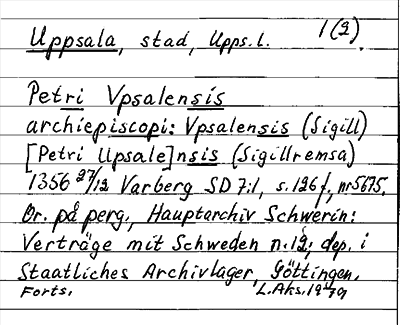 Uppsala, stad, Upps. L. 1(2).
Petri Vpsalensis
archiepiscopi: Vpsalensis (Sigill)
[Petri Upsale]nsis (Sigillremsa)
1356 27/12 Varberg SD 7:1, s. 126 f., nr 5675.
Or. på perg., Hauptarchiv Schwerin:
Verträge mit Schweden n. 12; dep. i
Staatliches Archivlager, Göttingen.
Forts. L. Aks.